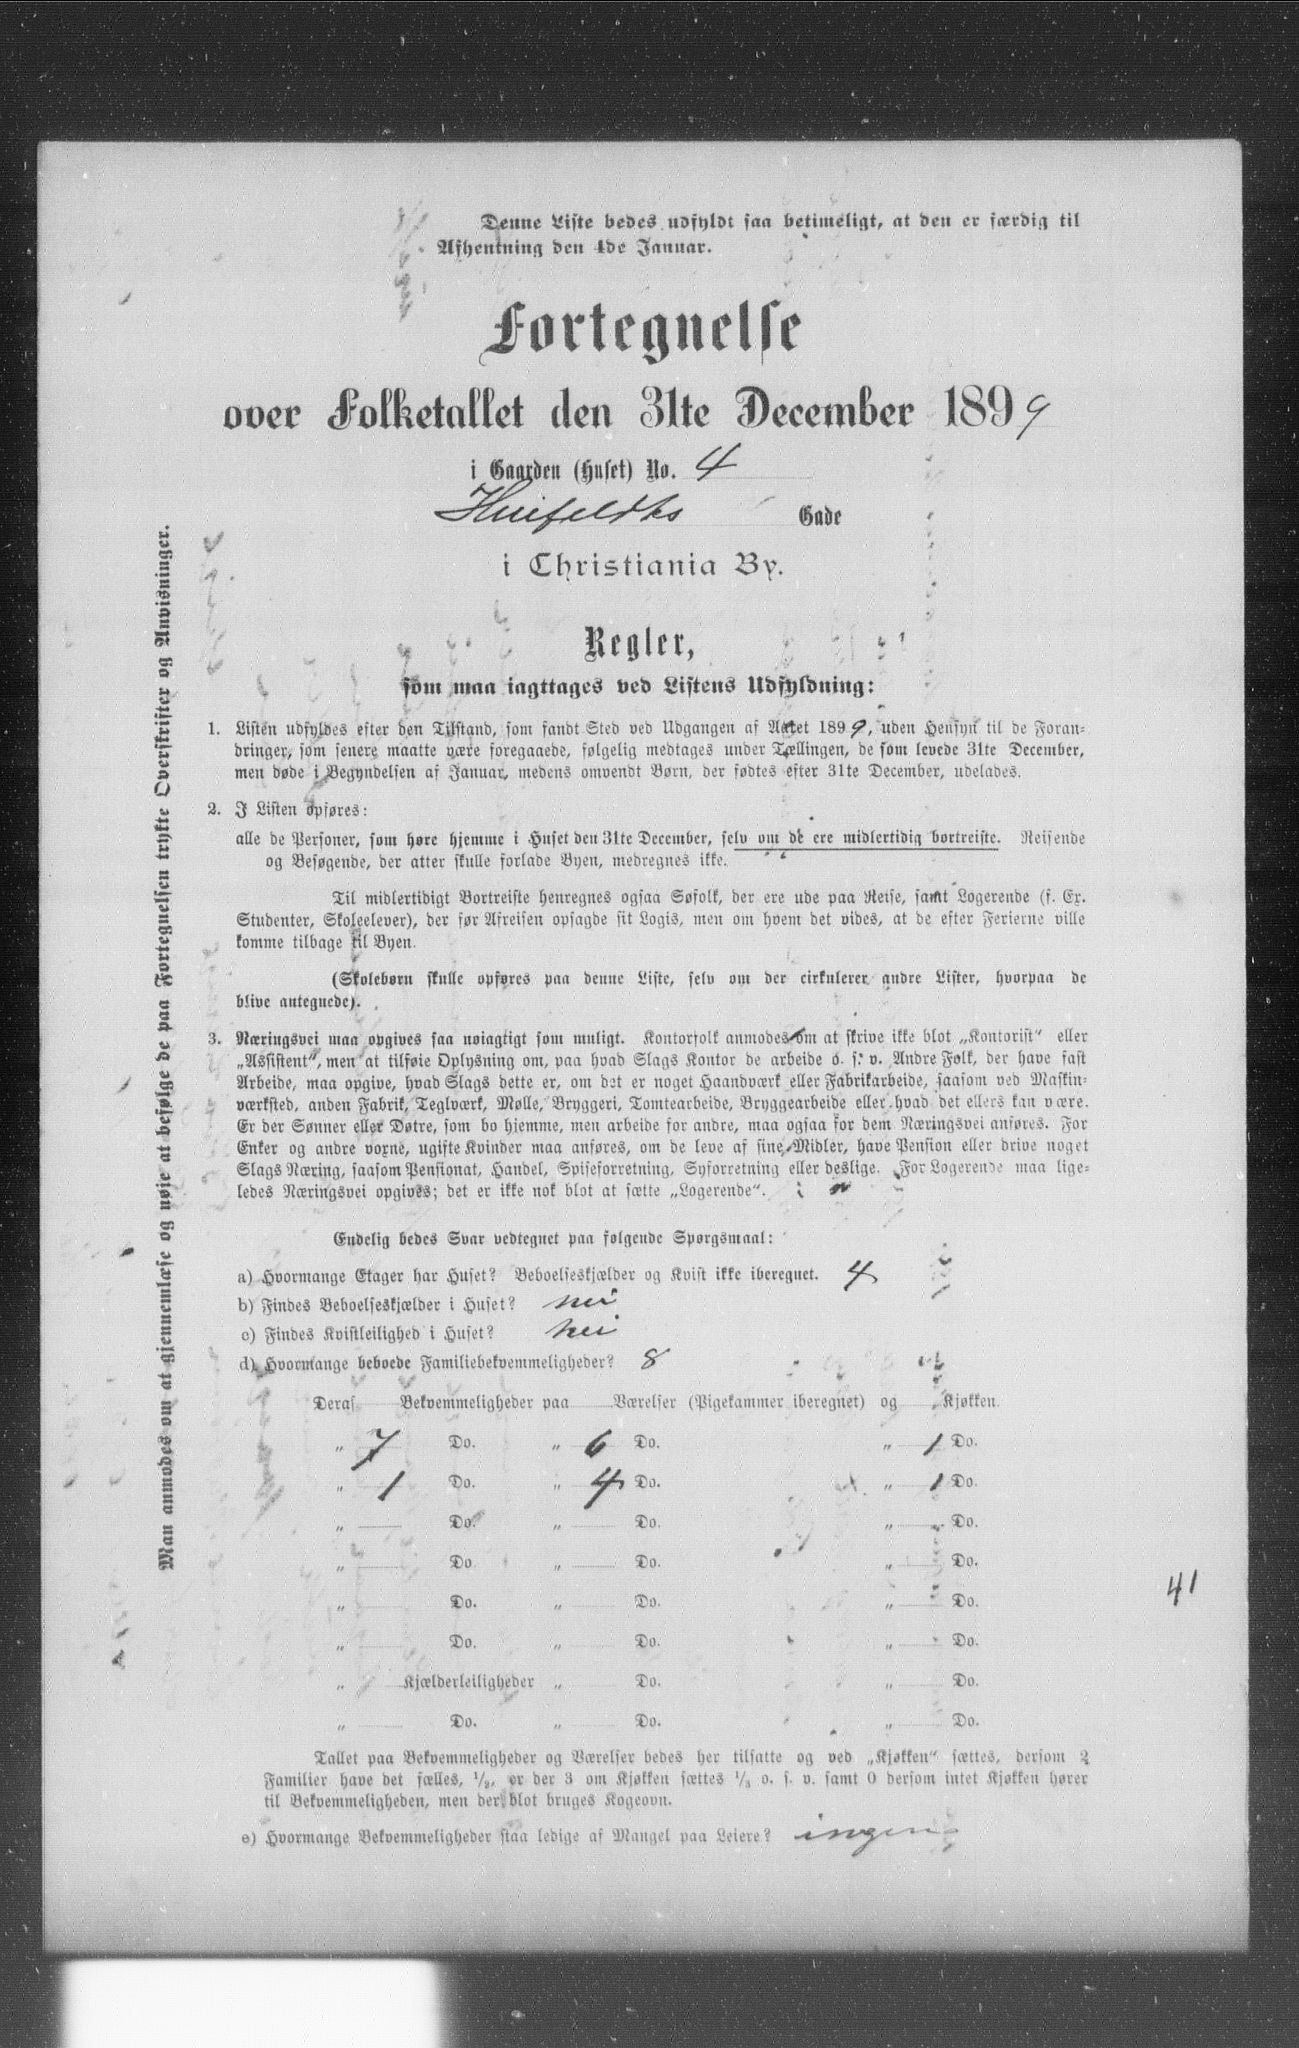 Denne Liste bedes udfyldt saa betimeligt, at den er færdig til
Afhentning den 4de Januar.
Fortegnelse
over Folketallet den 31te December 1899
i Gaarden (Huset) No. 4
Huifeldts Gade
i Christiania By.
Regler,
som maa iagttages ved Listens Udfyldning:
1. Listen udfyldes efter den Tilstand, som fandt Sted ved Udgangen af Aaret 1899, uden Hensyn til de Foran-
dringer, som senere maatte være foregaaede, følgelig medtages under Tællingen, de som levede 31te December,
men døde i Begyndelsen af Januar, medens omvendt Børn, der fødtes efter 31te December, udelades.
2. I Listen opføres:
alle de Personer, som høre hjemme i Huset den 31te December, selv om de ere midlertidig bortreiste. Reisende
og Besøgende, der atter skulle forlade Byen, medregnes ikke.
Til midlertidigt Bortreiste henregnes ogsaa Søfolk, der ere ude paa Reise, samt Logerende (f. Ex.
Studenter, Skoleelever), der før Afreisen opsagde sit Logis, men om hvem det vides, at de efter Ferierne ville
komme tilbage til Byen.
(Skolebørn skulle opføres paa denne Liste, selv om der cirkulerer andre Lister, hvorpaa de
blive antegnede).
3. Næringsvei maa opgives saa nøiagtigt som muligt. Kontorfolk anmodes om at skrive ikke blot „Kontorist“ eller
„Assistent“, men at tilføie Oplysning om, paa hvad Slags Kontor de arbeide o. s. v. Andre Folk, der have fast
Arbeide, maa opgive, hvad Slags dette er, om det er noget Haandværk eller Fabrikarbeide, saasom ved Maskin-
værksted, anden Fabrik, Teglværk, Mølle, Bryggeri, Tomtearbeide, Bryggearbeide eller hvad det ellers kan være.
Er der Sønner eller Døtre, som bo hjemme, men arbeide for andre, maa ogsaa for dem Næringsvei anføres. For
Enker og andre voxne, ugifte Kvinder maa anføres, om de leve af sine Midler, have Pension eller drive noget
Slags Næring, saasom Pensionat, Handel, Spiseforretning, Syforretning eller deslige. For Logerende maa lige-
ledes Næringsvei opgives; det er ikke nok blot at sætte „Logerende“.
Endelig bedes Svar vedtegnet paa følgende Spørgsmaal:
a) Hvormange Etager har Huset? Beboelseskjælder og Kvist ikke iberegnet. 4
b) Findes Beboelseskjælder i Huset? nei
c) Findes Kvistleilighed i Huset? nei
d) Hvormange beboede Familiebekvemmeligheder? 8
Deraf Bekvemmeligheder paa Værelser (Pigekammer iberegnet) og Kjøkken.
„ 7 Do. „ 6 Do. „ 1 Do.
„ 1 Do. „ 4 Do. „ 1 Do.
„ Do. „ Do. „ Do.
„ Do. „ Do. „ Do.
„ Do. „ Do. „ Do.
„ Do. „ Do. „ Do.
„ Kjælderleiligheder „ Do. „ Do.
„ Do. „ Do. „ Do.
Tallet paa Bekvemmeligheder og Værelser bedes her tilsatte og ved „Kjøkken“ sættes, dersom 2
Familier have det fælles, 1/2, er der 3 om Kjøkken sættes 1/3 o. s. v. samt 0 dersom intet Kjøkken hører
til Bekvemmeligheden, men der blot bruges Kogeovn.
e) Hvormange Bekvemmeligheder staa ledige af Mangel paa Leiere? ingen
Man anmodes om at gjennemlæse og nøie at befølge de paa Fortegnelsen trykte Overskrifter og Anvisninger.
41